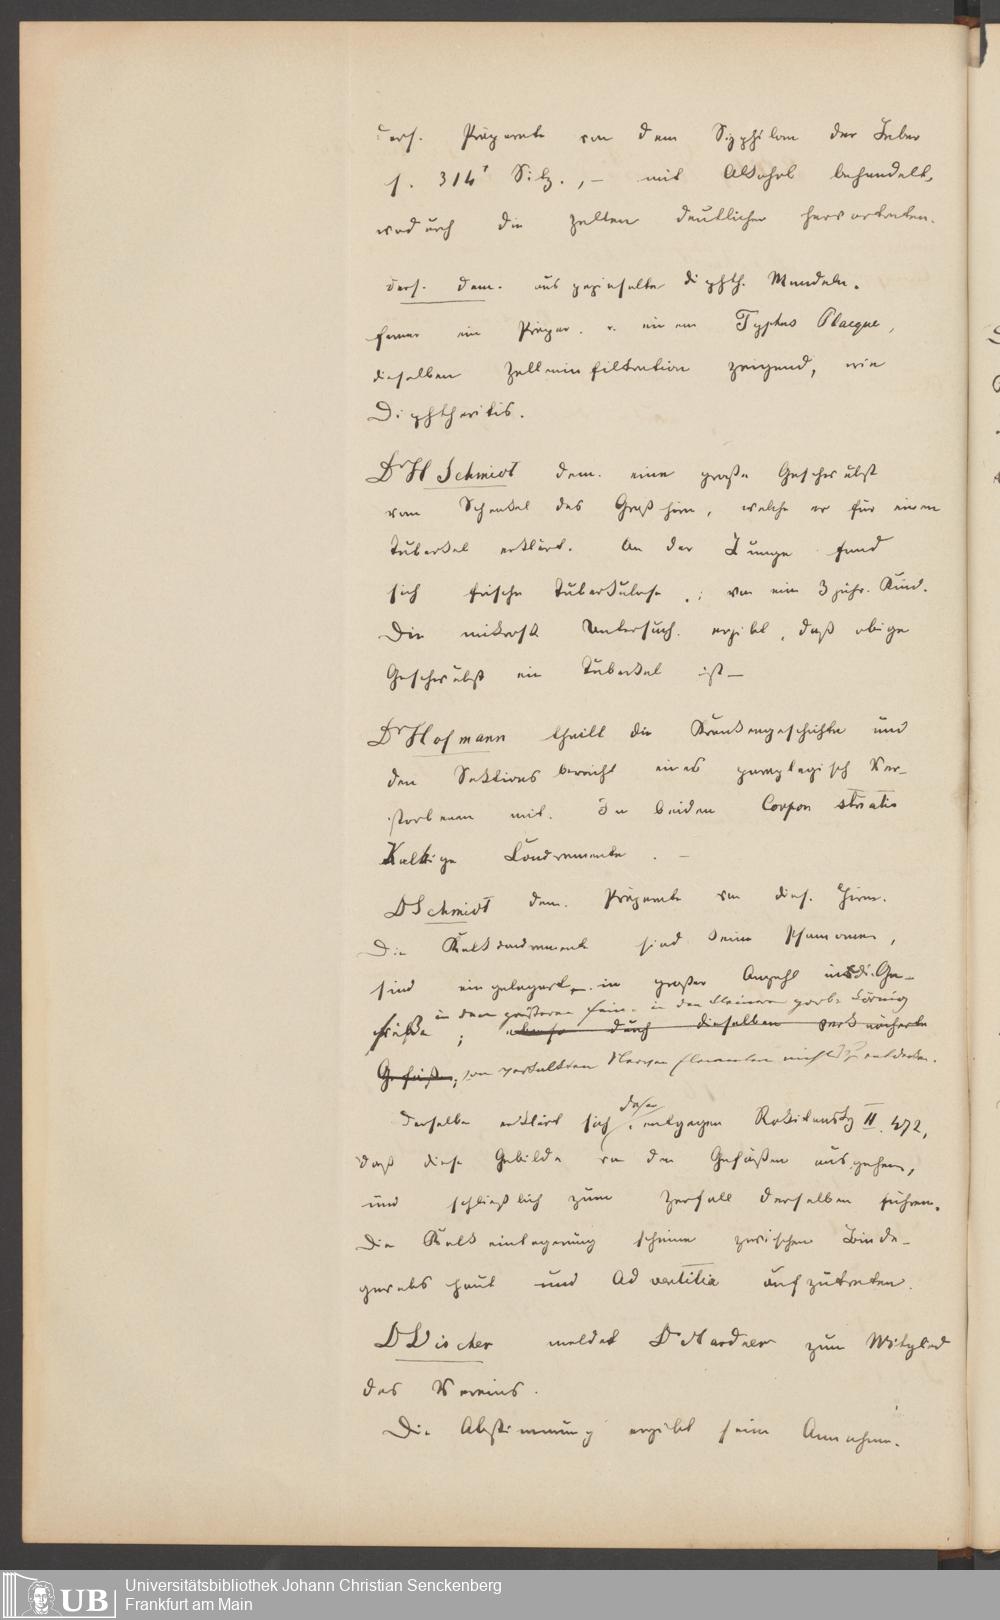 ders. Präparate von dem Syphilom der Leber
s. 314ᵗ Sitz., – mit Alkohol behandelt,
wodurch die Zellen deutlicher hervortreten.
ders. dem. ausgepinselte diphth. Mandeln.
ferner ein Präpar. v. einem Typhus Plaque,
dieselben Zelleninfiltration zeigend, wie
Diphtheritis.
Dr H Schmidt dem. eine große Geschwulst
vom Schenkel des Großhirn, welche er für einen
Tuberkel erklärt. An der Lunge fand
sich frische Tuberkulose; von ein 3 jähr. Kind.
Die mikrosk Untersuch. ergibt, daß obige
Geschwulst ein Tuberkel ist –
Dr Hofmann theilt die Krankengeschichte und
den Sektionsbericht eines paraplegisch Ver-
storbenen mit. In beiden Corpor striatis
Kalkige Kondremente. –
D Schmidt dem. Präparate von dies. Hirn.
Die Kalkkondremente sind keine Psammome,
sind eingelagert in großer Anzahl in die Ge-
in den größeren fein- in den kleineren grobkörnig
fäße; ebenso durch dieselben verknöcherte
Gefäße; von verkalkten Nerven elementen nicht zu entdecken.
Derselbe erklärt sich daher entgegen Rokitansky II. 472,
daß diese Gebilde von den Gefäßen ausgehen,
und schließlich zum Zerfall derselben führen.
Die Kalkeinlagerung scheine zwischen Binde-
gewebshaut und Adventitia aufzutreten.
D Vischer meldet Dr Mardner zum Mitglied
des Vereins.
Die Abstimmung ergibt sein Annahme.
Universitätsbibliothek Johann Christian Senckenberg
Frankfurt am Main
UB